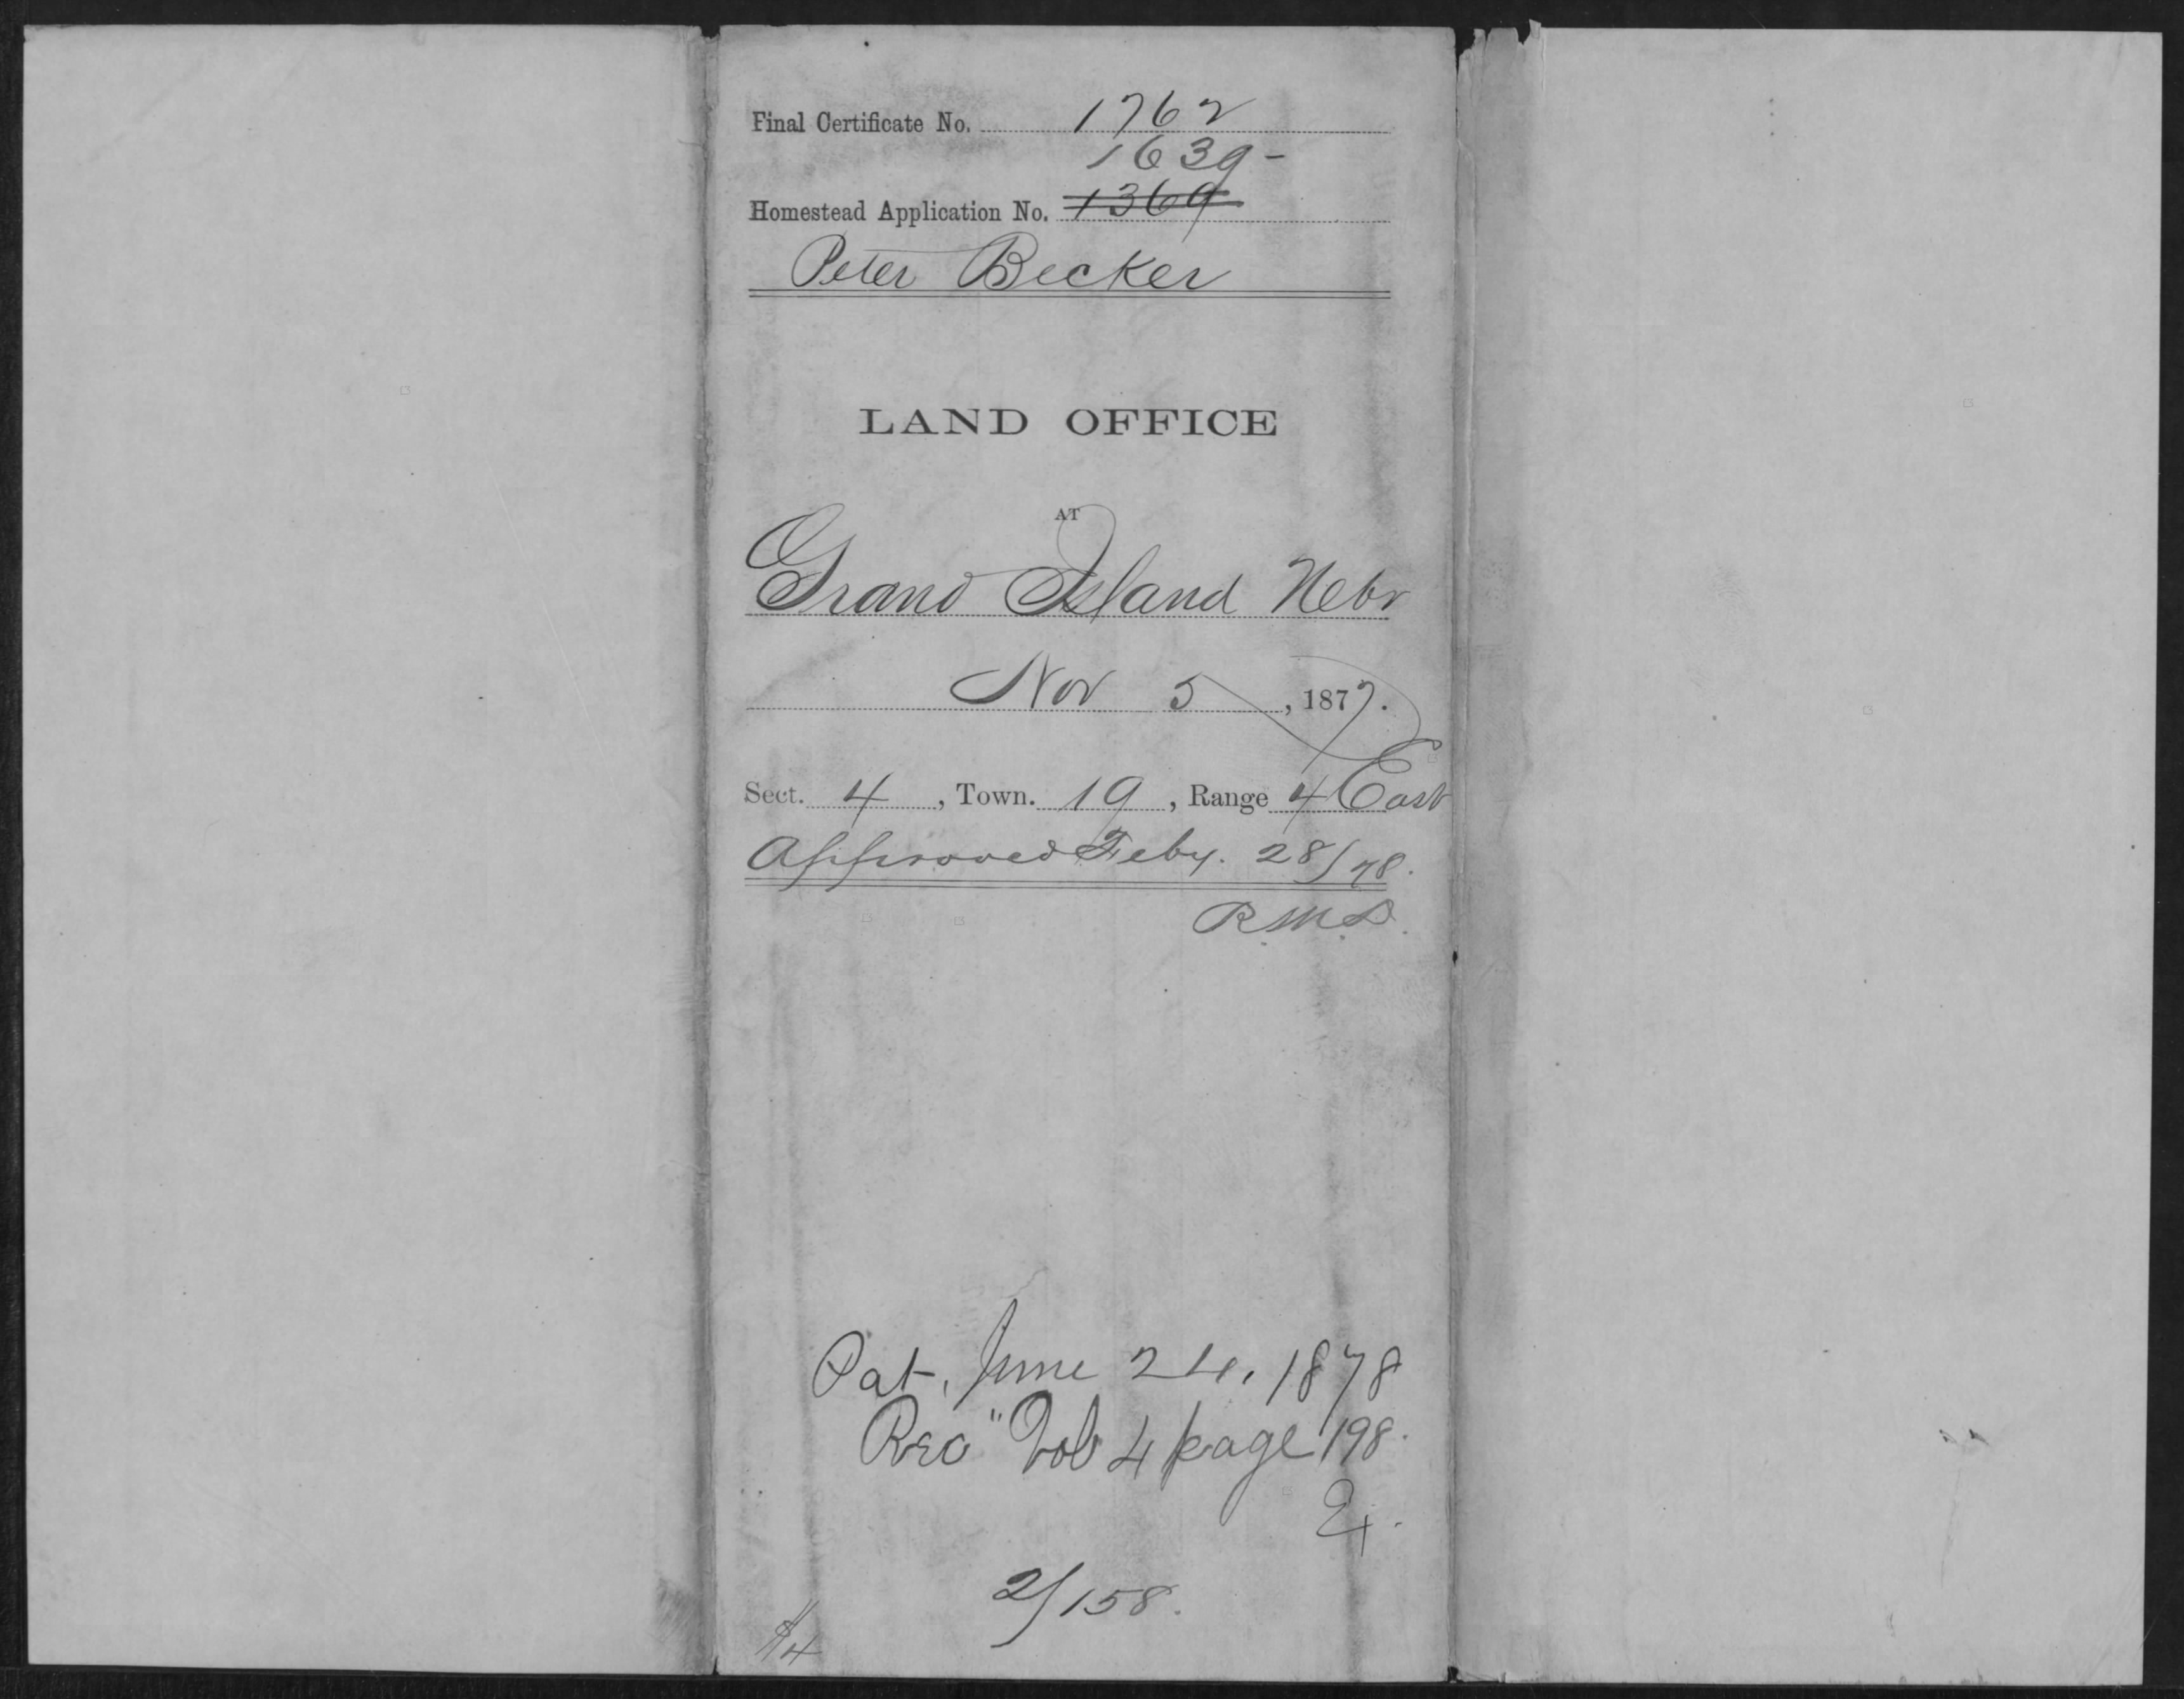 Final Certificate No. 1762
1639-
Homestead Application No. 1369
Peter Becker
LAND OFFICE
AT
Grand Island Nebr
Nov 5, 1877.
Sect. 4, Town. 19, Range 4 East
Approved Feby. 28/78.
Pat. June 24, 1878
Rec " Vol 4 page 198.
2/158.